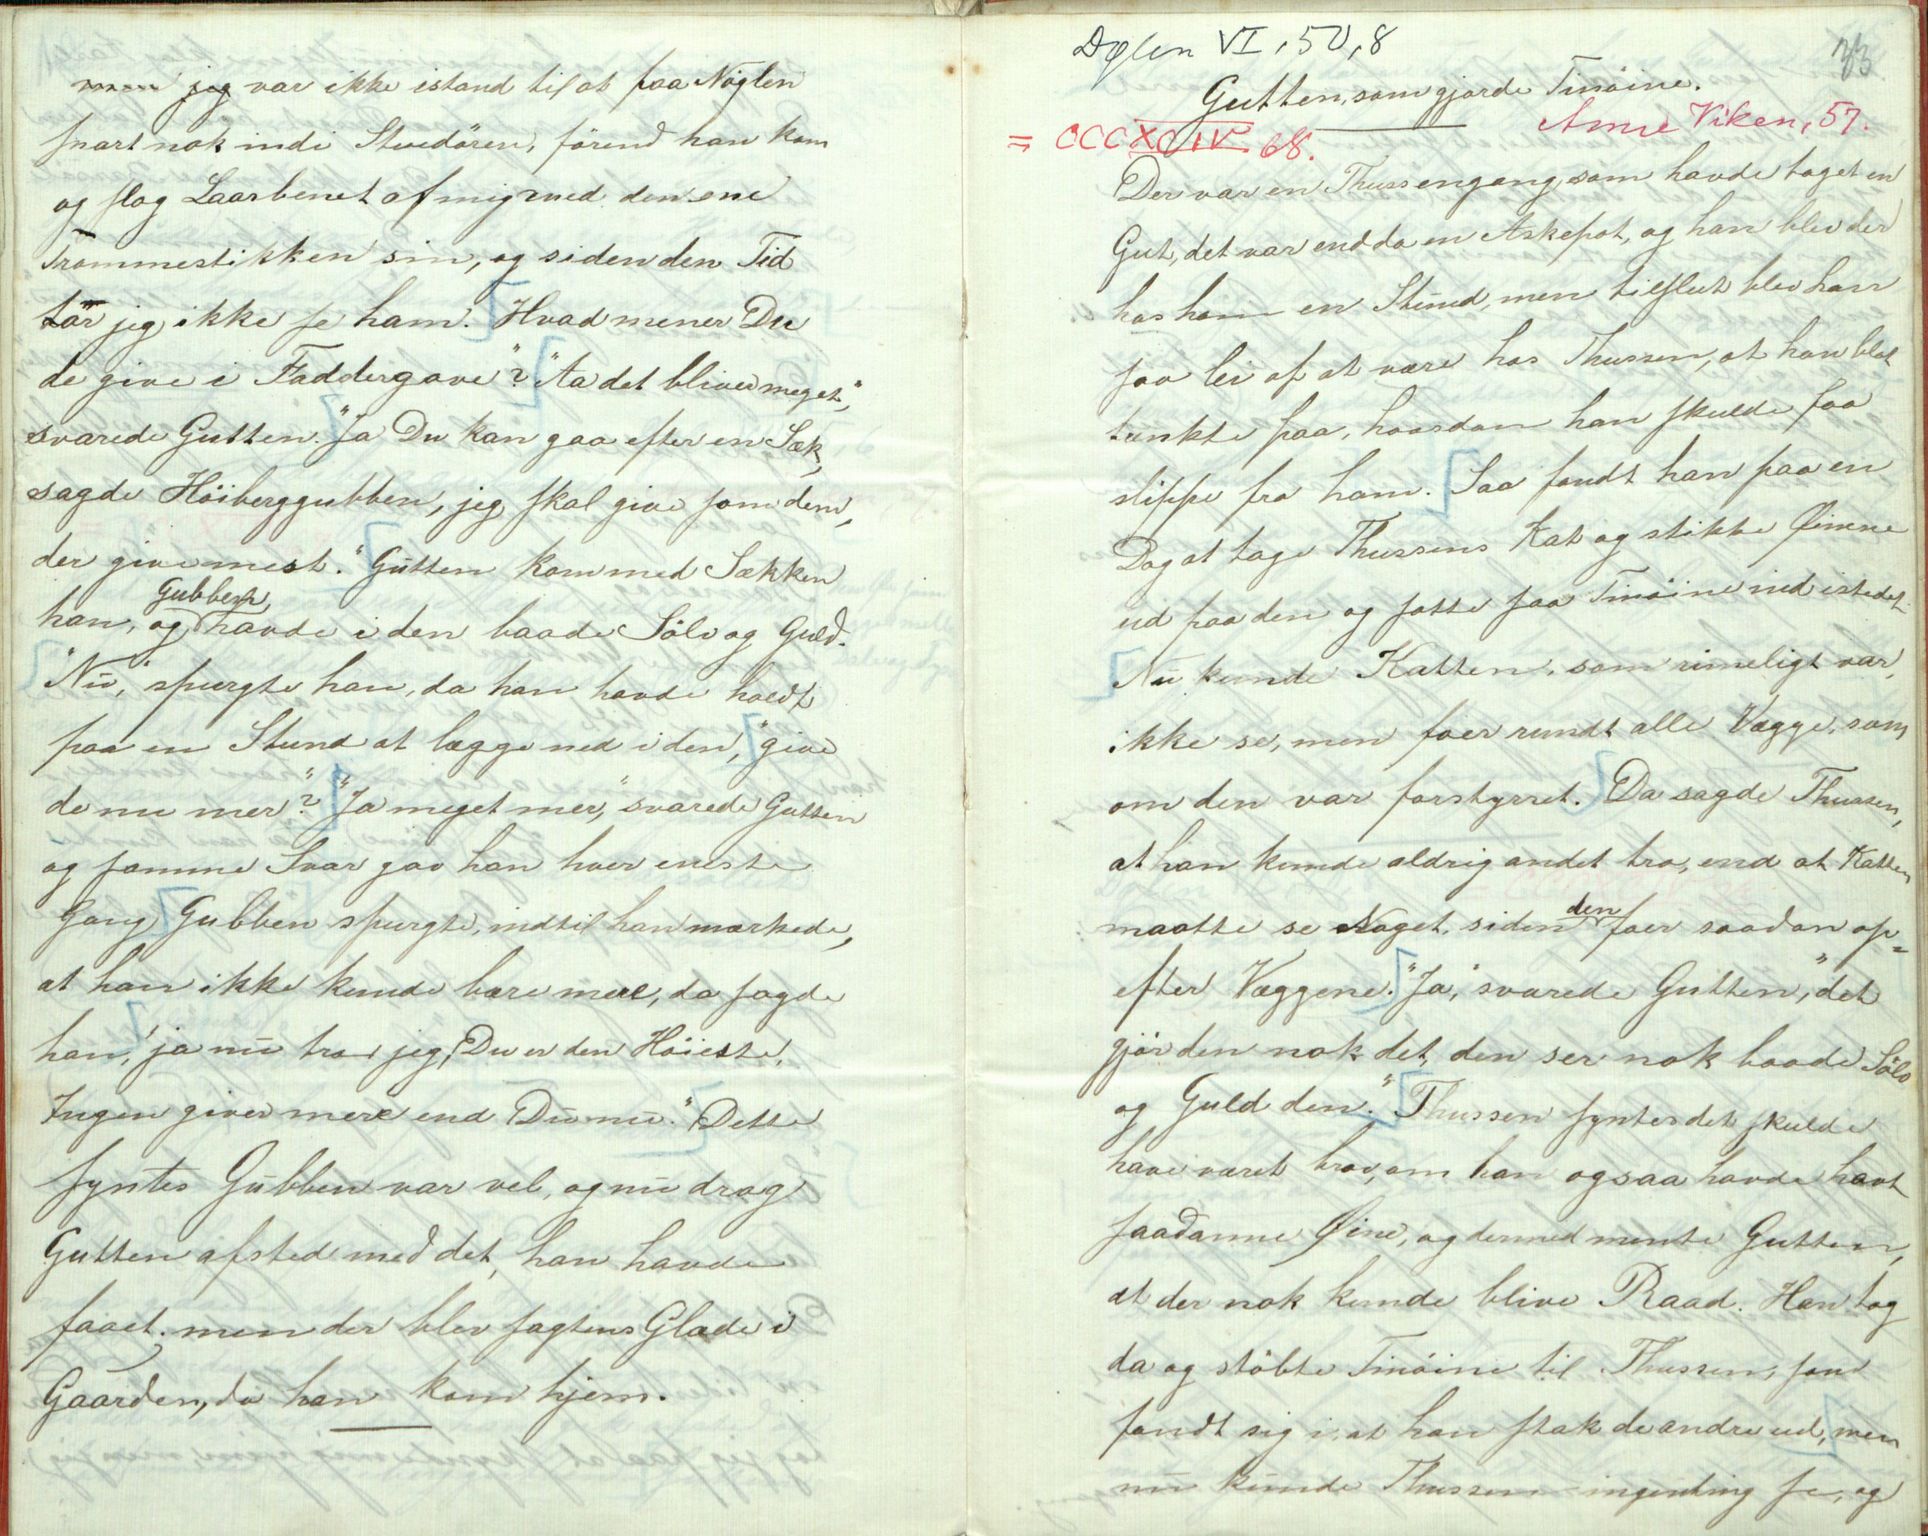 men jeg var ikke istand til at faa Nøglen
snart nok indi Stuedören, förend han kom
og slog Laarbenet af mig med den ene
Trommestikken sin, og siden den Tid
tör jeg ikke se ham. Hvad mener Du
de give i Faddergave"? "Aa det bliver meget",
svarede Gutten. "Ja Du kan gaa efter en Sæk,
sagde Höiberggubben, jeg skal give som dem,
der give mest." Gutten kom med Sækken
Gubben
han, og havde i den baade Sölv og Guld.
"Nu", spurgte han, da han havde holdt
paa en Stund at lægge ned i den, "give
de nu mer"? "Ja meget mer", svarede Gutten
og samme Svar gav han hver eneste
Gang Gubben spurgte, indtil han mærkede,
at han ikke kunde bære mere, da sagde
han, "ja nu tror jeg, Du er den Höieste.
Ingen giver mere end Du nu." Dette
syntes Gubben var vel, og nu drog
Gutten afsted med det, han havde
faaet, men der blev sagtens Glæde i
Gaarden, da han kom hjem.
Dølen VI, 50, 8
33
Gutten, som gjorde Tinöine.
Anne Viken, 57.
= CCCXCIV 68.
Der var en Thuss engang, som havde taget en
Gut, det var endda en Askepot, og han blev der
hos ham en Stund, men tilslut blev han
saa lei af at være hos Thussen, at han blot
tænkte paa, hvordan han skulde faa
slippe fra ham. Saa fandt han paa en
Dag at tage Thussens Kat og stikke Öinene
ud paa den og satte saa Tinöine ind istedet.
Nu kunde Katten, som rimeligt var,
ikke se, men foer rundt alle Vægge, som
om den var forstyrret. Da sagde Thussen,
at han kunde aldrig andet tro, end at Katten
den
maatte se Noget, siden foer saadan op=
efter Væggene. "Ja", svarede Gutten, "det
gjör den nok det, den ser nok baade Sölv
og Guld den." Thussen syntes det skulde
have været brav, om han ogsaa havde havt
saadanne Öine, og dermed mente Gutten,
at der nok kunde blive Raad. Han tog
da og stöbte Tinöine til Thussen, som
fandt sig i, at han stak de andre ud, men
nu kunde Thussen ingenting se, og